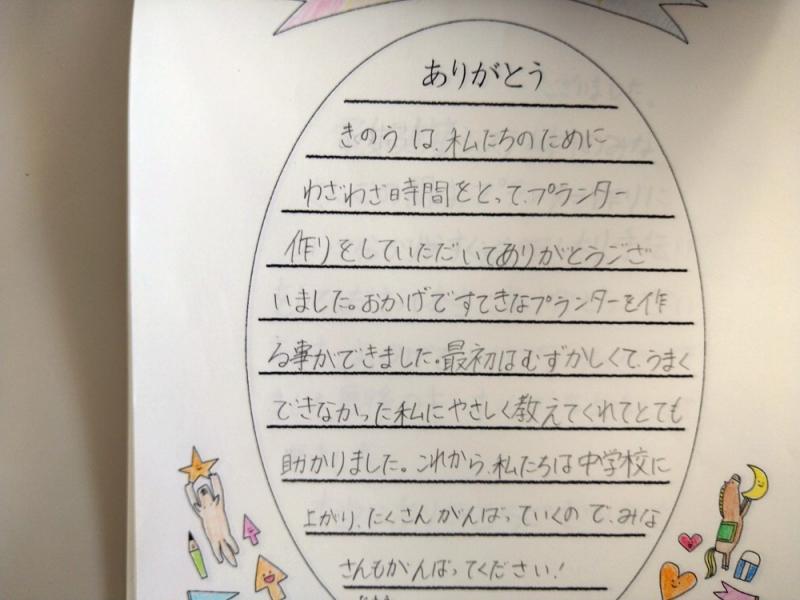 ありがとう
きのうは、私たちのために
わざわざ時間をとって、プランター
作りをしていただいてありがとうござ
いました。おかげですてきなプランターを作
る事ができました。最初はむずかしくて、うまく
できなかった私にやさしく教えてくれてとても
助かりました。これから、私たちは中学校に
上がり、たくさんがんばっていくので、みな
さんもがんばってください!